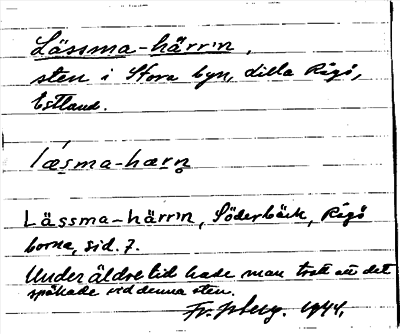 Lässma-härrn,
sten i Stora byn, dilla Rågö,
Estland.
læsma-hærn
Lässma-härrn, Söderbäck, Rågö
borna, sid. 7.
Under äldre tid hade man trott att det
spökade vid denna sten.
1944.